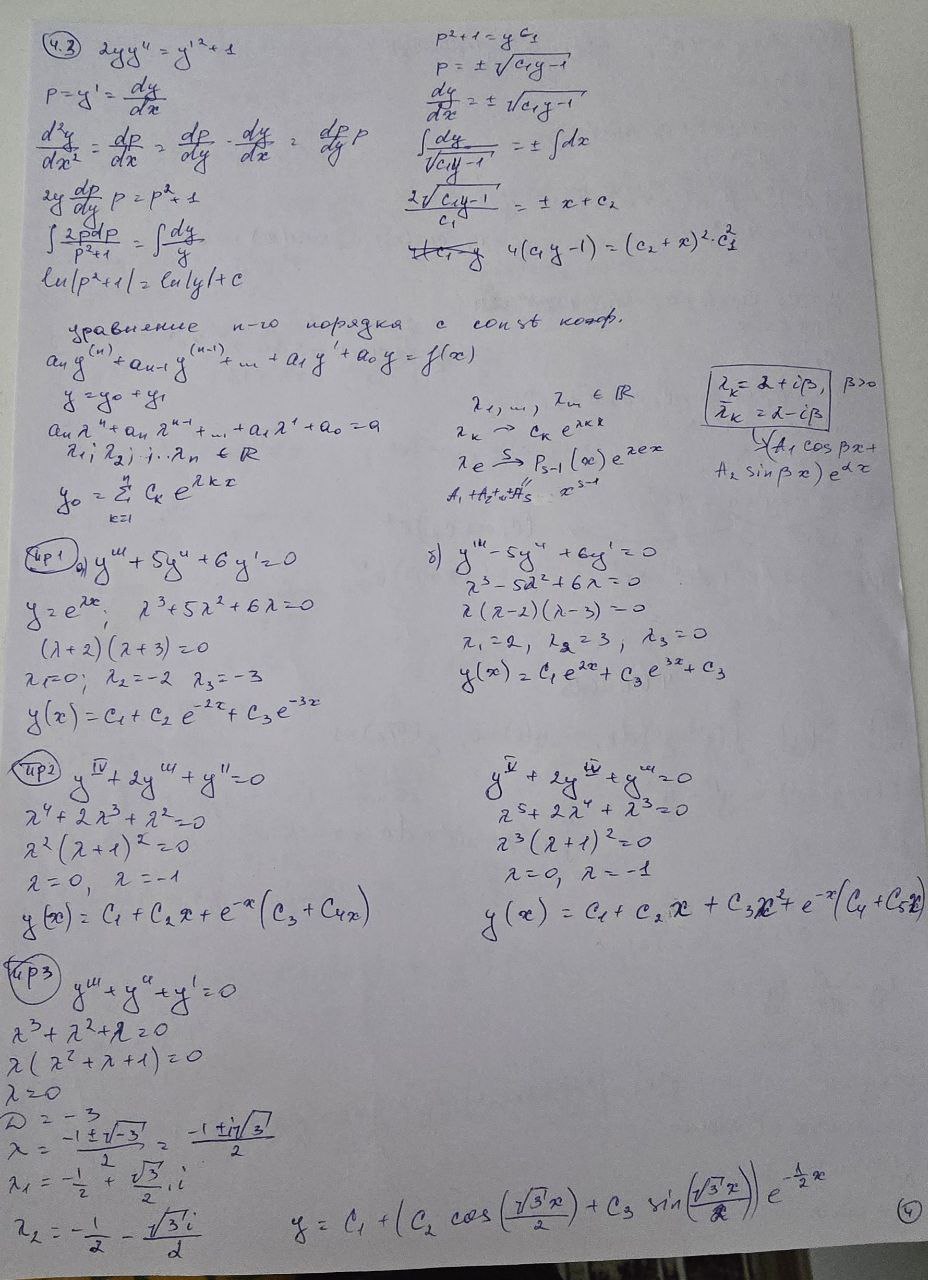 4.3 2yy'' = y'² + 1
p = y' = dy/dx
d²y/dx² = dp/dx = dp/dy · dy/dx = dp/dy p
2y dp/dy p = p² + 1
∫ 2pdp/(p²+1) = ∫ dy/y
ln|p²+1| = ln|y| + c
p² + 1 = y C₁
p = ± √(c₁y-1)
dy/dx = ± √(c₁y-1)
∫ dy/√(c₁y-1) = ± ∫ dx
2√(c₁y-1)/c₁ = ± x + c₂
4(c₁y-1) = (c₂+x)² · c₁²
уравнение n-го порядка с const коэф.
aₙ y⁽ⁿ⁾ + aₙ₋₁ y⁽ⁿ⁻¹⁾ + ... + a₁ y' + a₀ y = f(x)
y = y₀ + y₁
aₙ λⁿ + aₙ λⁿ⁻¹ + ... + a₁ λ¹ + a₀ = 0
λ₁; λ₂; ... λₙ ∈ ℝ
y₀ = Σₖ₌₁ⁿ Cₖ e^(λₖx)
λ₁, ..., λₘ ∈ ℝ
λₖ → Cₖ e^(λₖx)
λₑ →ˢ Pₛ₋₁(x) e^(λₑx)
A₁ + A₂ + ... + Aₛ · xˢ⁻¹
λₖ = α + iβ, β>0
λ̄ₖ = α - iβ
→ (A₁ cos βx +
A₂ sin βx) e^(αx)
Пр1 а) y''' + 5y'' + 6y' = 0
y = e^(λx); λ³ + 5λ² + 6λ = 0
(λ+2)(λ+3) = 0
λ₁=0; λ₂=-2 λ₃=-3
y(x) = C₁ + C₂ e^(-2x) + C₃ e^(-3x)
б) y''' - 5y'' + 6y' = 0
λ³ - 5λ² + 6λ = 0
λ(λ-2)(λ-3) = 0
λ₁=2, λ₂=3, λ₃=0
y(x) = C₁e^(2x) + C₃e^(3x) + C₃
Пр2 y^IV + 2y''' + y'' = 0
λ⁴ + 2λ³ + λ² = 0
λ²(λ+1)² = 0
λ = 0, λ = -1
y(x) = C₁ + C₂x + e^(-x)(C₃ + C₄x)
y^V + 2y^IV + y''' = 0
λ⁵ + 2λ⁴ + λ³ = 0
λ³(λ+1)² = 0
λ = 0, λ = -1
y(x) = C₁ + C₂x + C₃x² + e^(-x)(C₄ + C₅x)
Пр3 y''' + y'' + y' = 0
λ³ + λ² + λ = 0
λ(λ² + λ + 1) = 0
λ = 0
D = -3
λ = (-1±√-3)/2 = (-1±i√3)/2
λ₁ = -1/2 + √3/2 · i
λ₂ = -1/2 - √3i/2
y = C₁ + (C₂ cos(√3x/2) + C₃ sin(√3x/2)) e^(-1/2 x)
4